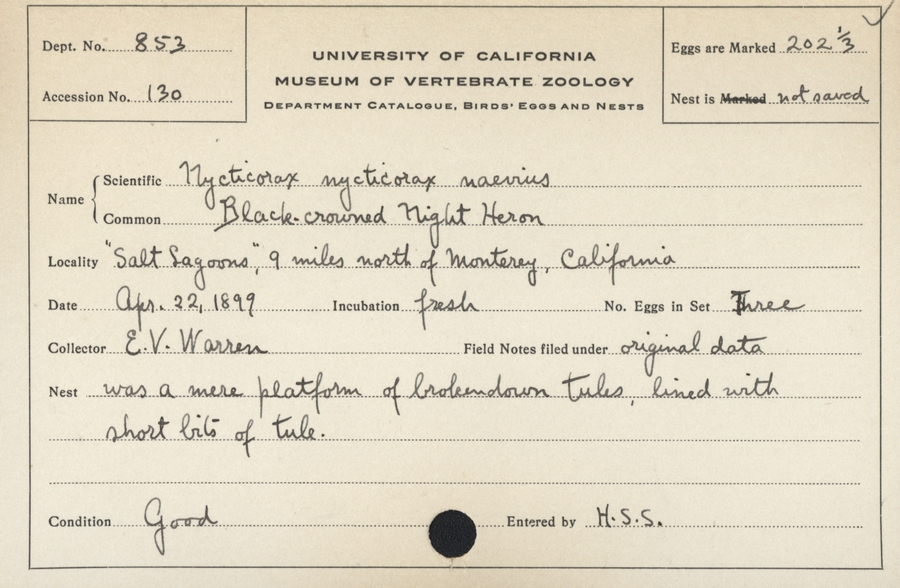 Dept. No. 853
Accession No. 130
UNIVERSITY OF CALIFORNIA
MUSEUM OF VERTEBRATE ZOOLOGY
DEPARTMENT CATALOGUE, BIRDS' EGGS AND NESTS
Eggs are Marked 202 1/3
Nest is Marked not saved
Name
Scientific Nycticorax nycticorax naevius
Common Black-crowned Night Heron
Locality "Salt Lagoons", 9 miles north of Monterey, California
Date Apr. 22, 1899 Incubation fresh No. Eggs in Set Three
Collector E.V. Warren Field Notes filed under original data
Nest was a mere platform of brokendown tules, lined with
short bits of tule.
Condition Good Entered by H.S.S.